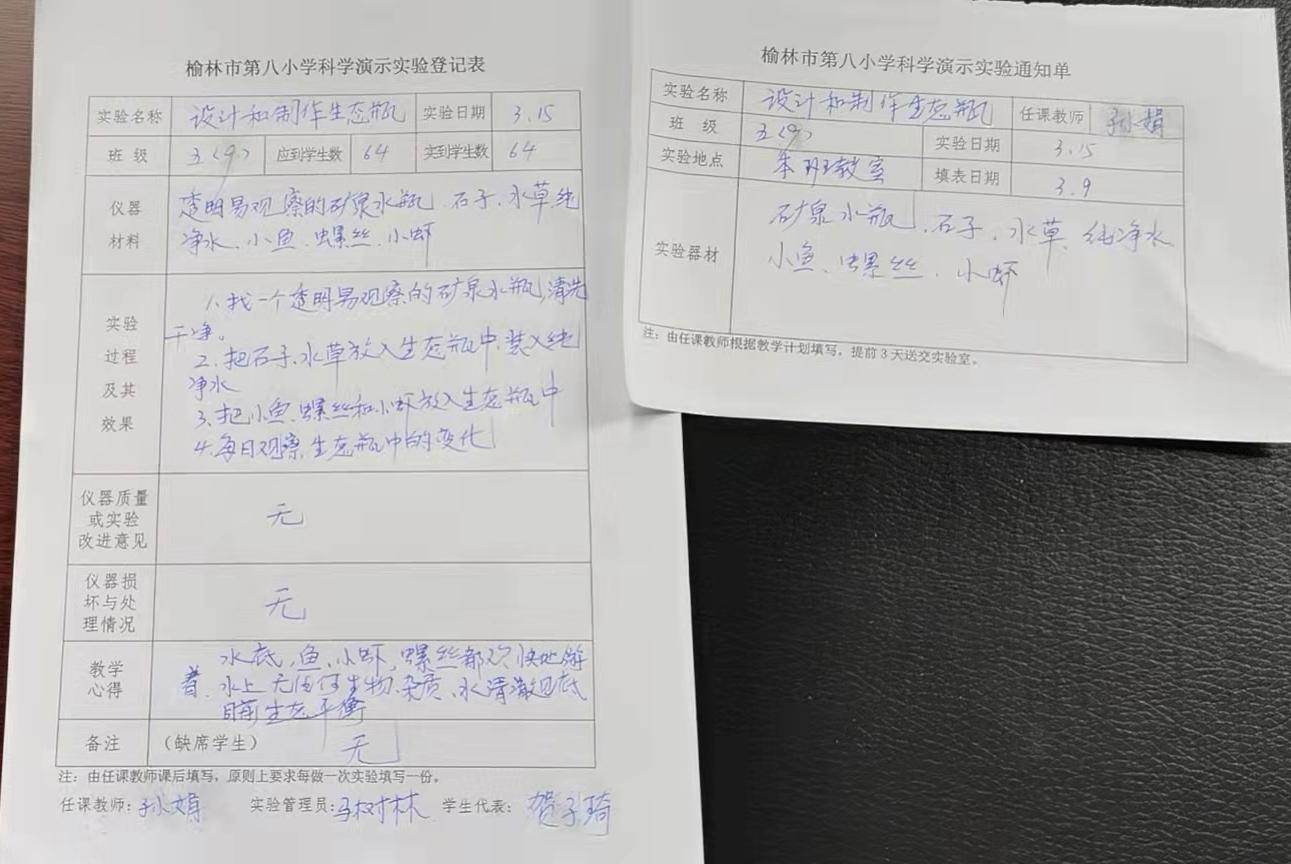 榆林市第八小学科学演示实验登记表
实验名称 设计和制作生态瓶 实验日期 3.15
班 级 五(9) 应到学生数 64 实到学生数 64
仪器 材料
透明易观察的矿泉水瓶、石子、水草、纯
净水、小鱼、螺丝、小虾
实验 过程 及其 效果
1、找一个透明易观察的矿泉水瓶,清洗
干净。
2、把石子、水草放入生态瓶中,装入纯
净水
3、把小鱼、螺丝和小虾放入生态瓶中
4、每日观察生态瓶中的变化
仪器质量
或实验
改进意见
无
仪器损
坏与处
理情况
无
教学
心得
水底,鱼、小虾,螺丝都欢快地游
着.水上无任何生物、杂质、水清澈见底
目前生态平衡
备注 (缺席学生) 无
注:由任课教师课后填写,原则上要求每做一次实验填写一份。
任课教师:孙娟 实验管理员:马树林 学生代表:贺子琦
榆林市第八小学科学演示实验通知单
实验名称 设计和制作生态瓶 任课教师 孙娟
班 级 五(9) 实验日期 3.15
实验地点 本班教室 填表日期 3.9
实验器材
矿泉水瓶、石子、水草、纯净水
小鱼、螺丝、小虾
注:由任课教师根据教学计划填写,提前3天送交实验室。